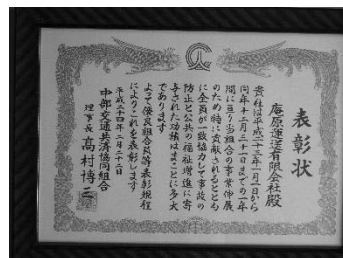 表彰状
庵原運送有限会社殿
貴社は平成二十三年一月一日から
同年十二月三十一日までの一年
間に亘り当組合の事業伸展
のため特に貢献されるとともに
に全員が一致協力して事故の
防止と公共の福祉増進に寄
与された功績はまことに多大
であります
よって優良組合員等表彰規程
によりこれを表彰します
平成二十四年二月二十二日
中部交通共済協同組合
理事長 高村博三